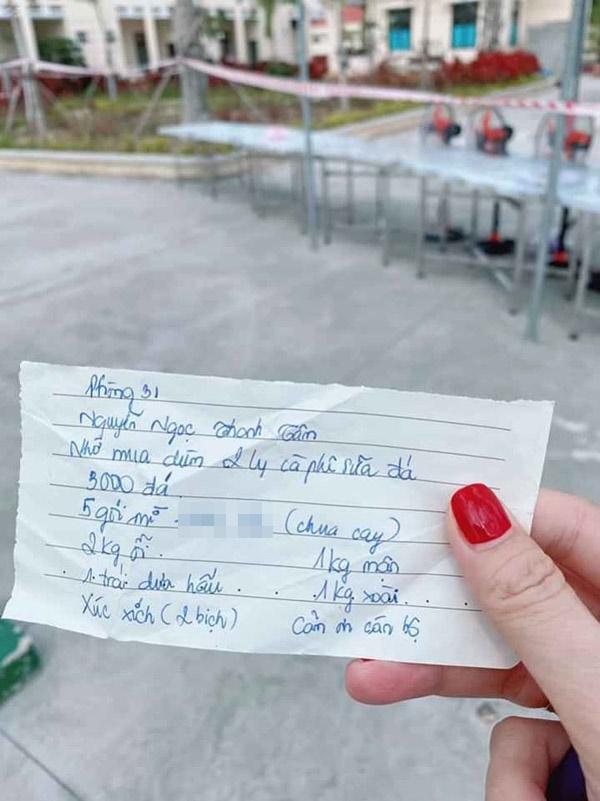 Phòng 31
Nguyễn Ngọc Thanh Tâm
Nhờ mua dùm 2 ly cà phê sữa đá
3000 đá
5 gói mì (chua cay)
2 kg ổi. 1 kg mận
1. trái dưa hấu . . 1 kg xoài . . .
Xúc xích (2 bịch) Cảm ơn cán bộ